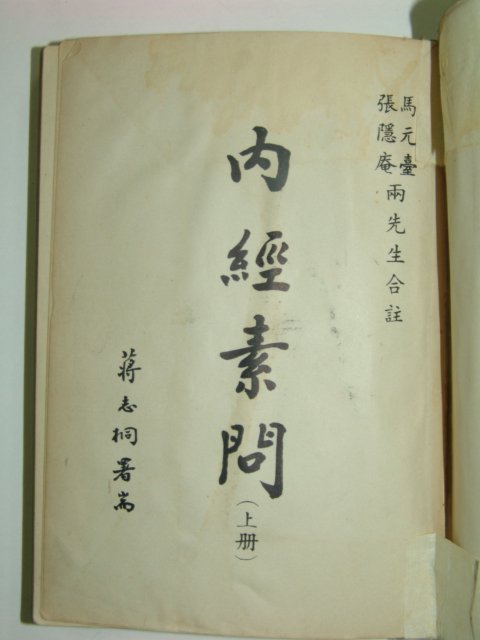 馬元臺
張隱庵
兩先生合註
內經素問
(上册)
蔣志桐署耑